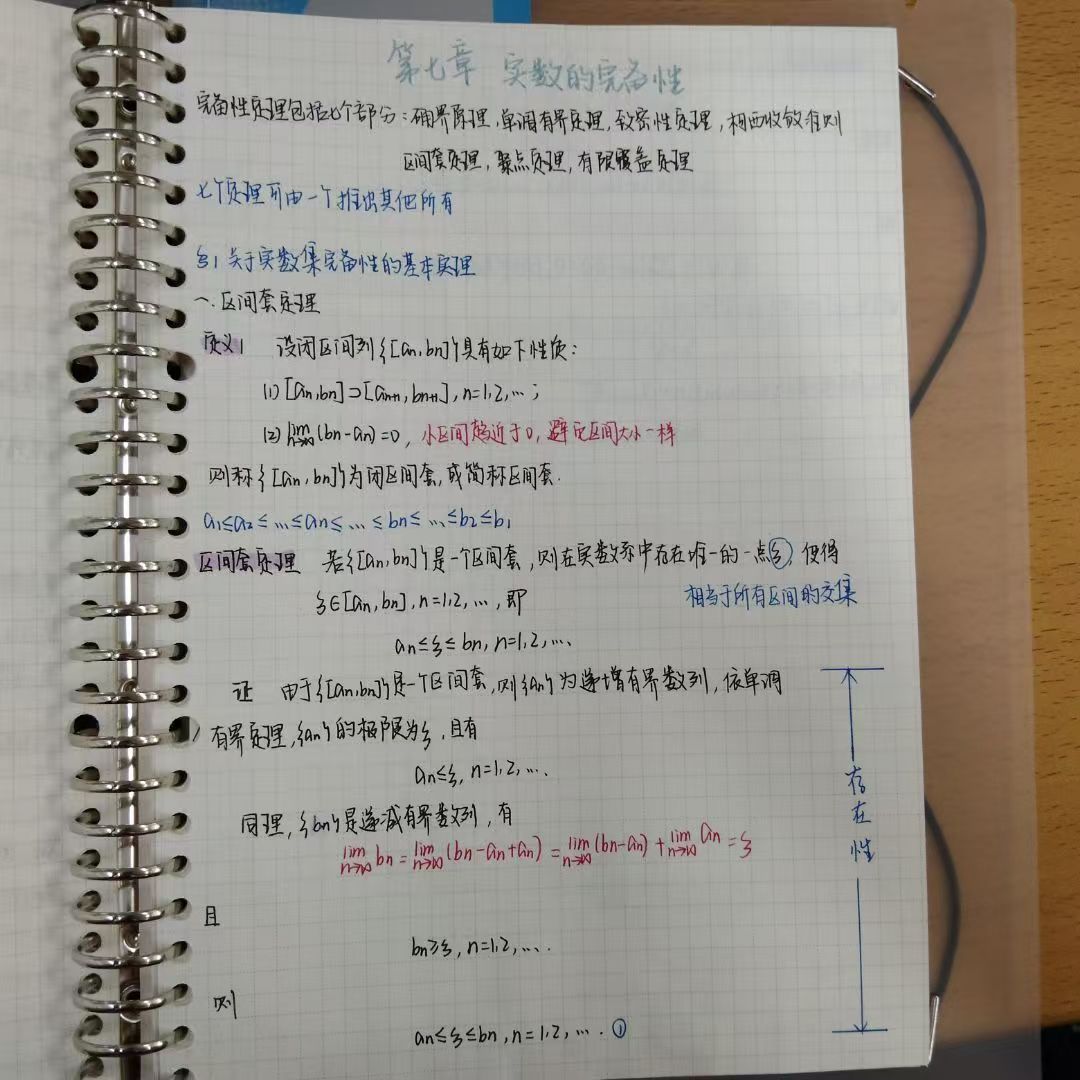 第七章 实数的完备性
完备性定理包括七个部分:确界原理,单调有界定理,致密性定理,柯西收敛准则
区间套定理,聚点定理,有限覆盖定理
七个定理可由一个推出其他所有
§1 关于实数集完备性的基本定理
一.区间套定理
定义1 设闭区间列{[an,bn]}具有如下性质:
(1) [an,bn]⊃[an+1,bn+1],n=1,2,…;
(2) lim n→∞ (bn-an)=0, 小区间趋近于0,避免区间大小一样
则称{[an,bn]}为闭区间套,或简称区间套.
a1≤a2≤…≤an≤…≤bn≤…≤b2≤b1
区间套定理 若{[an,bn]}是一个区间套,则在实数系中存在唯一的一点ξ,使得
ξ∈[an,bn],n=1,2,…,即 相当于所有区间的交集
an≤ξ≤bn,n=1,2,….
证 由于{[an,bn]}是一个区间套,则{an}为递增有界数列,依单调
有界定理,{an}的极限为ξ,且有
an≤ξ,n=1,2,….
同理,{bn}是递减有界数列,有
lim n→∞ bn = lim n→∞ (bn-an+an) = lim n→∞ (bn-an) + lim n→∞ an = ξ
且
bn≥ξ,n=1,2,….
则
an≤ξ≤bn,n=1,2,…. ①
存在性